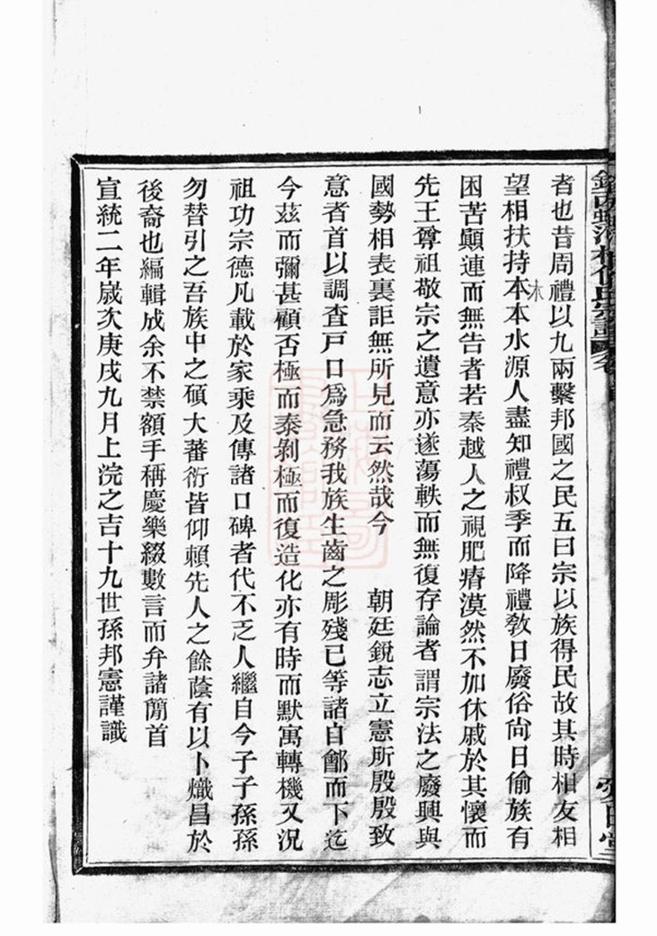 者也昔周禮以九兩繫邦國之民五曰宗以族得民故其時相友相
望相扶持本本水源人盡知禮叔季而降禮敎日廢俗尙日偷族有
木
困苦顚連而無告者若秦越人之視肥瘠漠然不加休戚於其懷而
先王尊祖敬宗之遺意亦遂蕩軼而無復存論者謂宗法之廢興與
國勢相表裏詎無所見而云然哉今 朝廷鋭志立憲所殷殷致
意者首以調查戸口爲急務我族生齒之彫殘已等諸自鄶而下迄
今茲而彌甚顧否極而泰剝極而復造化亦有時而默寓轉機又况
祖功宗德凡載於家乘及傳諸口碑者代不乏人繼自今子子孫孫
勿替引之吾族中之碩大蕃衍皆仰賴先人之餘蔭有以卜熾昌於
後裔也編輯成余不禁額手稱慶樂綴數言而弁諸簡首
宣統二年歲次庚戌九月上浣之吉十九世孫邦憲謹識